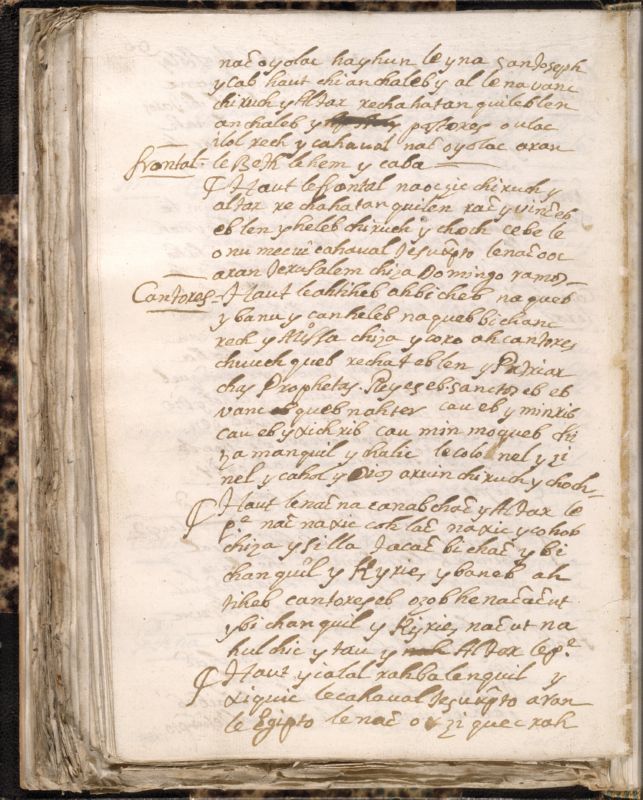 nac̃ oyolac hayhun leyna San Joseph
ycab haut chianchaleb y al lenavanc
chiruch y Altar rechahatan quileblen
anchaleb y pastores oulac
ilol rech y cahaval nac̃ oyolac aran
frontal - le Bethlehem y caba
Haut lefrontal naoczic chiruch y
altar rechahatan quilen rac̃ y vinc̃ eb
eblen y heleb chiruch y choch cebe le
onumec cahaval Jesuxp̃to lenac̃ ooc
aran Jerusalem chiza Domingo ramos
Cantores - Haut leahtiheb ahbicheb naqueb
ybanu y canheleb naquebbichanc
rech y Missa chiza y coro ah cantores
chuuch queb rechateblen y Patriar
chas Prophetas, Reyes eb sanctos eb eb
vanc queb nahter cau eb y minrib
cau eb y xichrib cau min moqueb chi
za manquil y chalic lecolonel y zi
nel y cahol y Dios arvin chiruch y choch
Haut lenac̃ nacanabchac̃ y Altar le
p.e nac̃ naxic cohlac̃ naxic y cohob
chiza y silla Jacac̃ bichac̃ y bi
chanquil y Kyries, y baneb ah
tiheb cantores eb ozobhenac̃ac̃ut
y bichanquil y Kyries, nac̃ut na
hulchic y tau y Altar lep.e
Haut y ialal rahbalenquil y
xiquic lecahaval Jesuxp̃to aran
le Egipto lenac̃ oxziquecrah